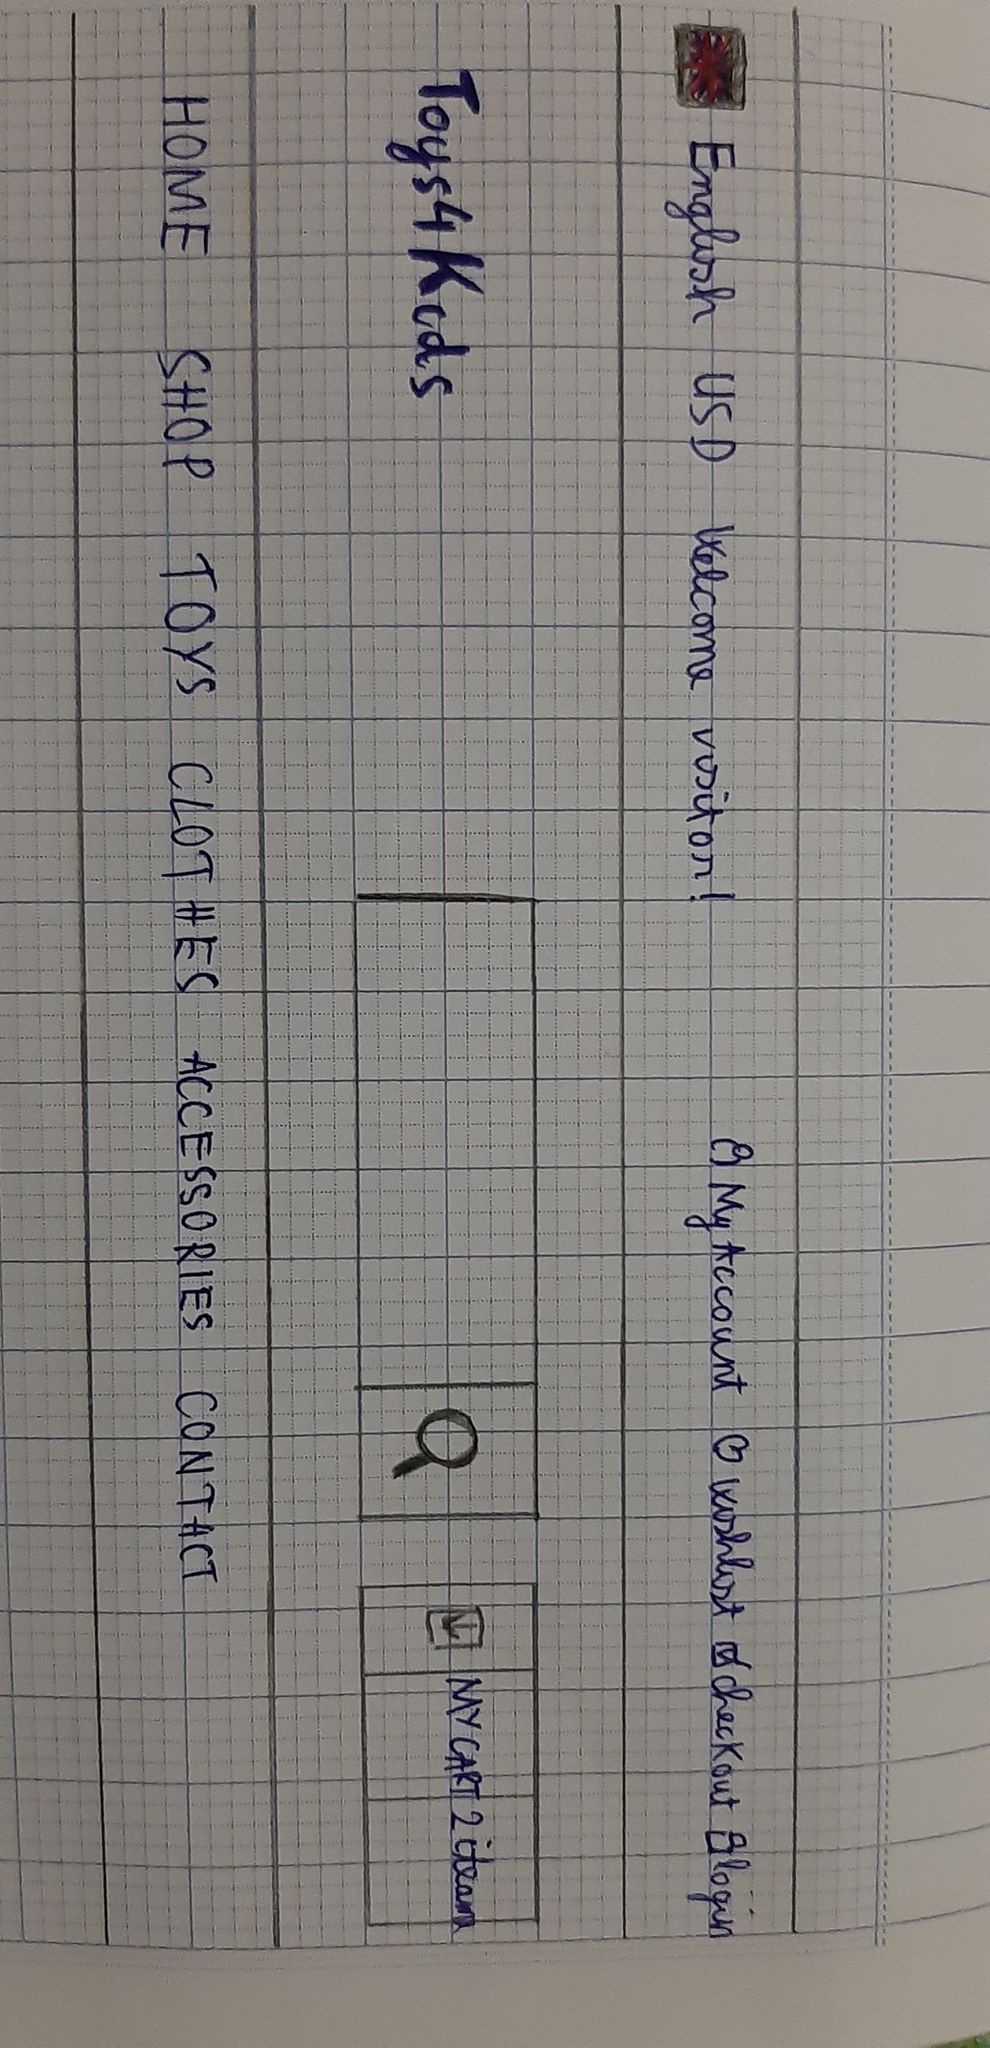 English USD Welcome visitor! My Account wishlist checkout login
Toys4Kids MY CART 2 iteam
HOME SHOP TOYS CLOTHES ACCESSORIES CONTACT